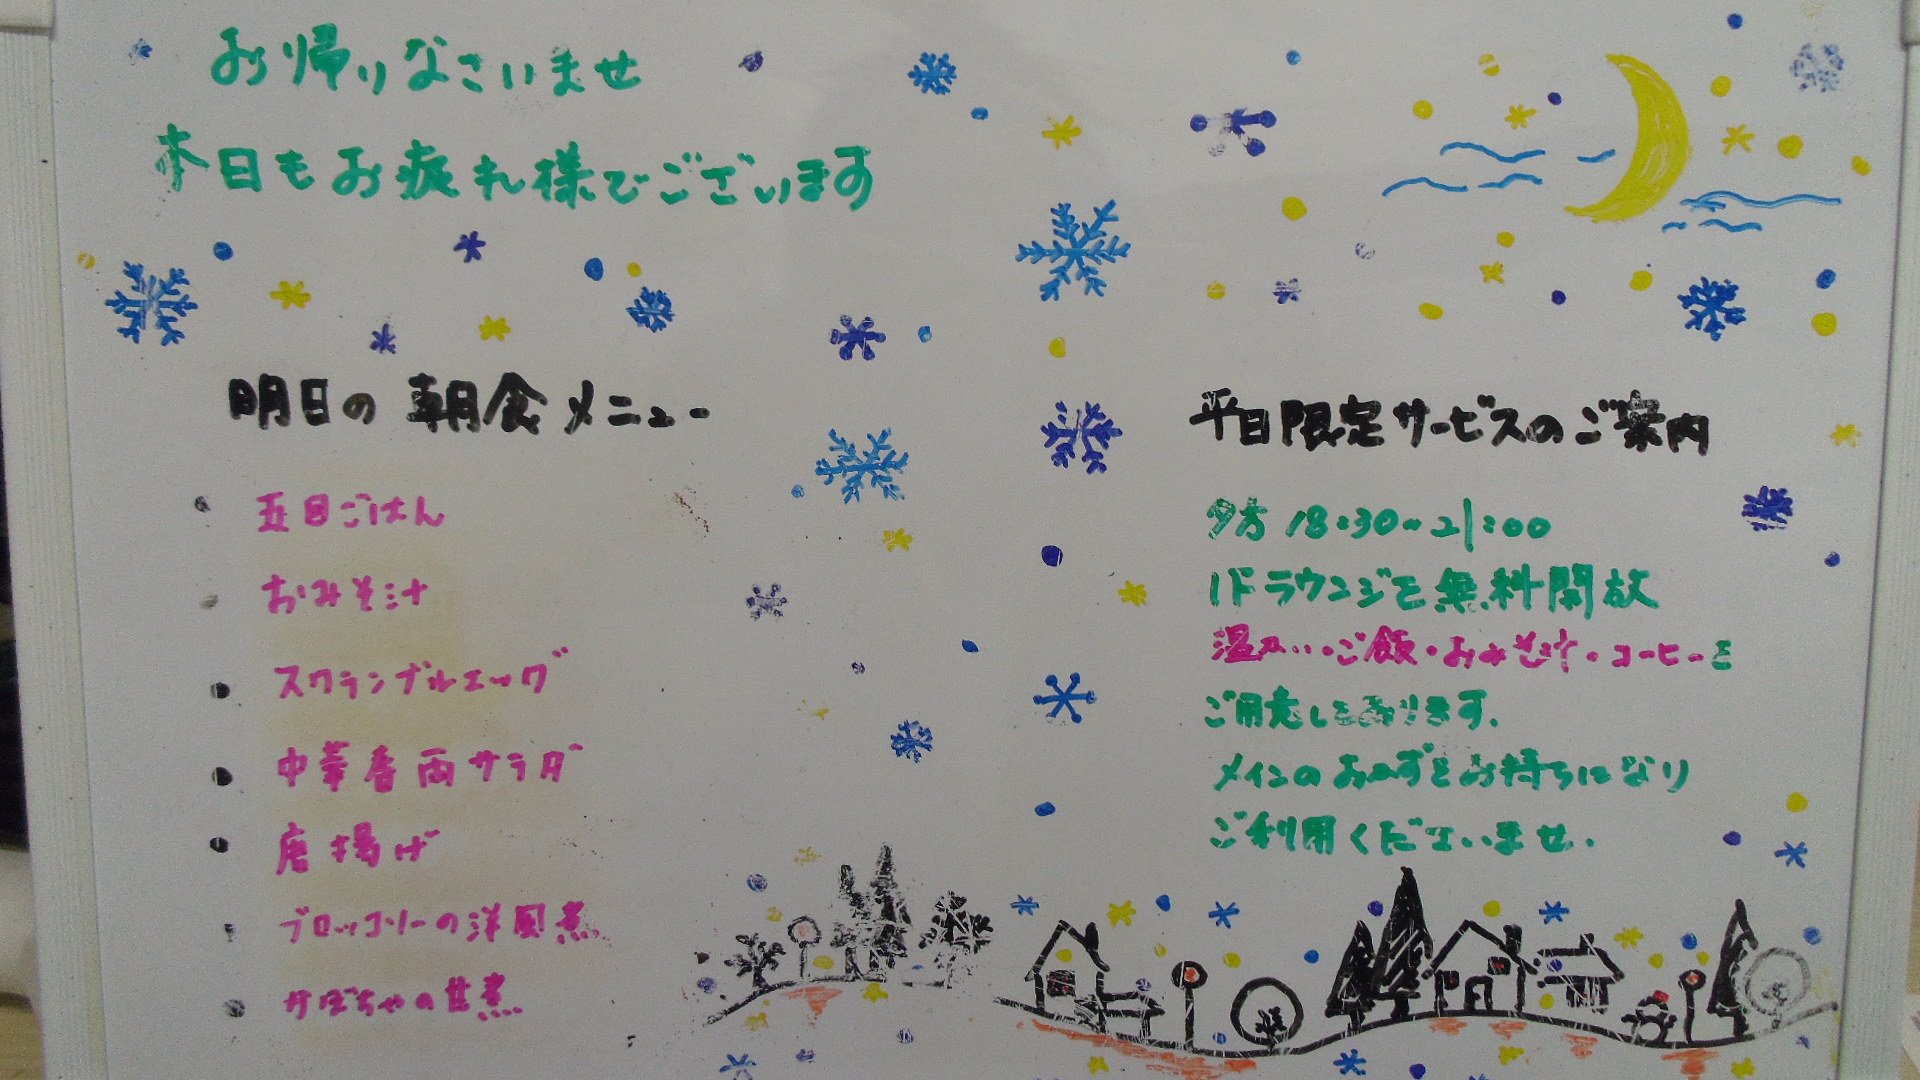 お帰りなさいませ
本日もお疲れ様でございます
明日の朝食メニュー
・五目ごはん
・おみそ汁
・スクランブルエッグ
・中華春雨サラダ
・唐揚げ
・ブロッコリーの洋風煮
・かぼちゃの甘煮
平日限定サービスのご案内
夕方 18:30~21:00
1Fラウンジを無料開放
温かい・ご飯・おみそ汁・コーヒーを
ご用意しております。
メインのおかずをお持ちになり
ご利用くださいませ。